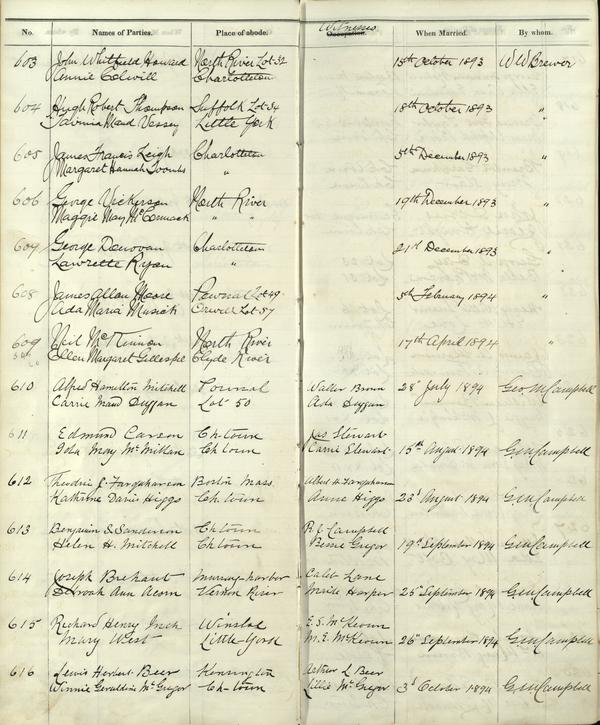 No. Names of Parties. Place of abode. Witnesses Occupation. When Married. By whom.
603 John Whitfield Howard North River Lot 32 18th October 1893 W W Brewer
Annie Colwill Charlottetown
604 Hugh Robert Thompson Suffolk Lot 34 18th October 1893 "
Maud Vessey Little York
605 James Francis Leigh Charlottetown 5th December 1893 "
Margaret Hannah Toombs "
606 George Vickerson North River 19th December 1893 "
Maggie May McCormack " "
607 George Donovan Charlottetown 21st December 1893 "
Lawrette Ryan "
608 James Allan Moore Pownal Lot 49 5th February 1894 "
Ada Maria Musick Orwell Lot 57
609 Neil McKinnon North River 17th April 1894 "
Ellen Margaret Gillespie Clyde River
610 Alfred Hamilton Mitchell Pownal Walter Brown 28 July 1894 Geo M Campbell
Carrie Maud Duggan Lot 50 Ada Duggan
611 Edmund Carson Ch town Jas Stewart 15th August 1894 G M Campbell
Iola May McMillan Ch town Carrie Stewart
612 J. Farquharson Boston Mass. Albert H. Farquharson 23d August 1894 G M Campbell
Katherine Davis Higgs Ch. town Annie Higgs
613 Benjamin S Sanderson Ch town R. E. Campbell 19th September 1894 G M Campbell
Helen H. Mitchell Ch town Bessie Gregor
614 Joseph Brehaut Murray-harbor Caleb Lane 25th September 1894 G M Campbell
Deborah Ann Acorn Vernon River Harper
615 Richard Henry Inch Winsloe E. S. McKeown 26th September 1894 G M Campbell
Mary West Little-York M. E. McKeown
616 Lewis Herbert Beer Kensington Arthur L Beer 3d October 1894 G M Campbell
Winnie Geraldine McGregor Ch-town Lillie McGregor